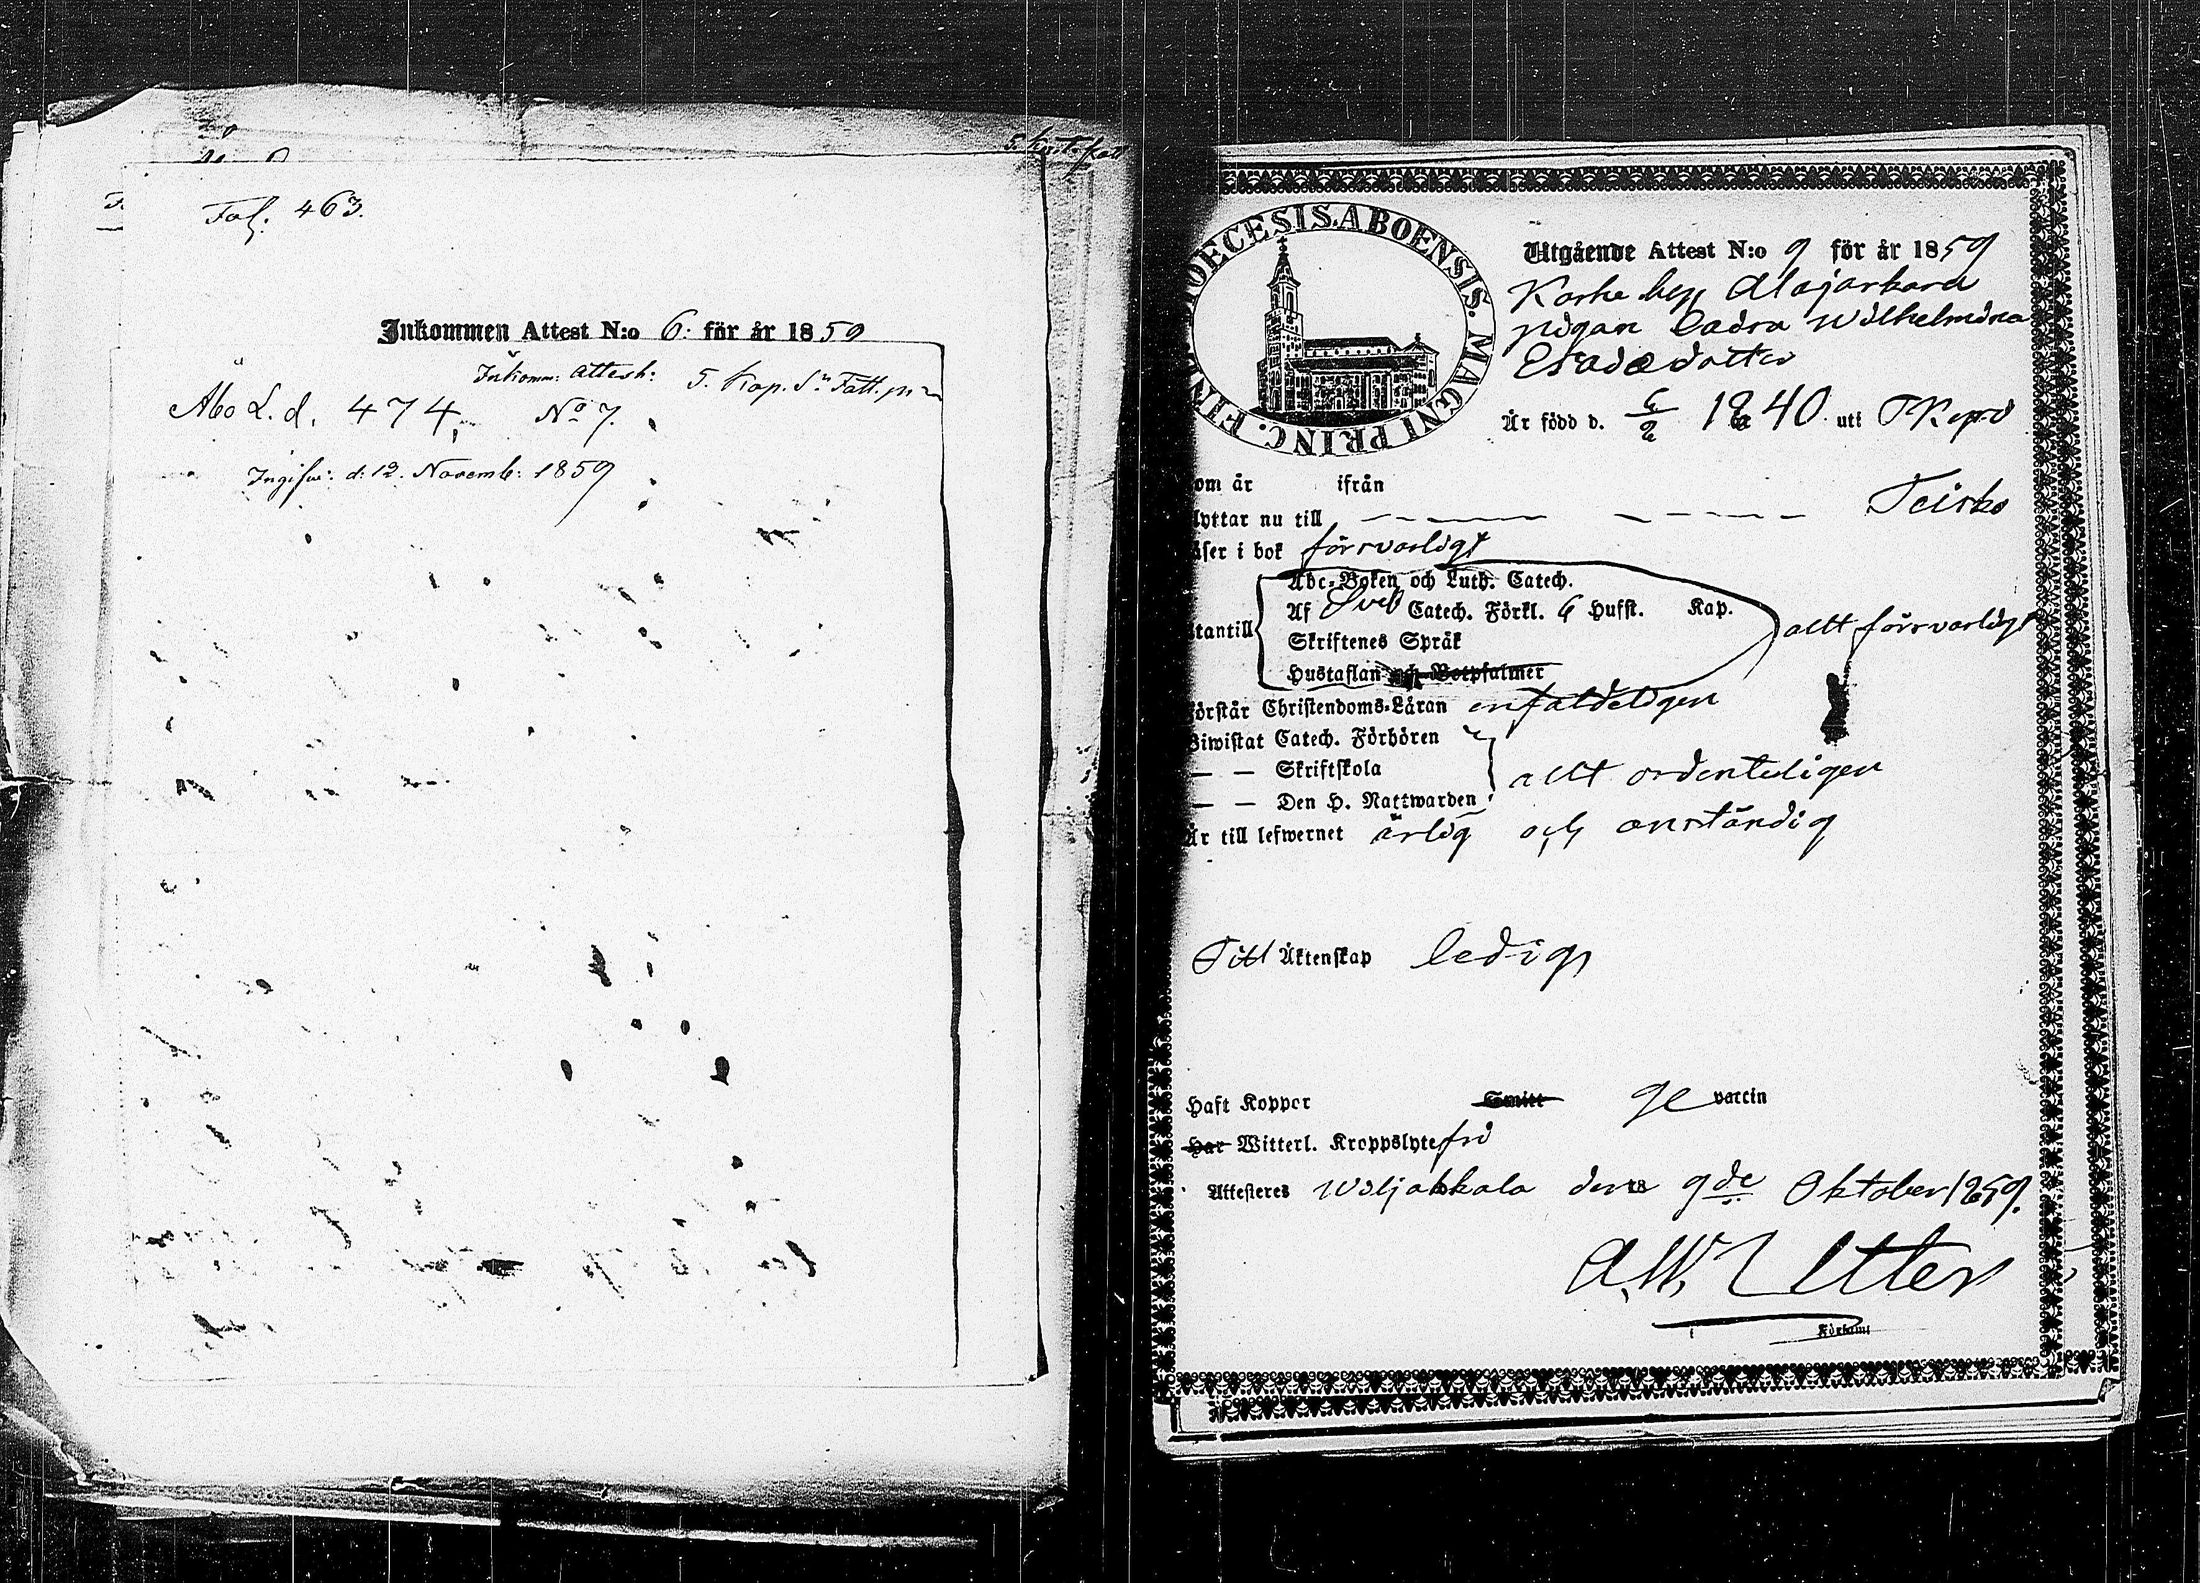 5. Kap.
Fol. 463.
Inkommen Attest N:o 6. för år 1859
Inkomm: Attest:
5. Kap. Sn Fatt.
Åbo L. d. 474, No 7.
d: 12. Novemb: 1859
DIOECESIS. ABOENSIS. MAGNI PRINC. FINL
Utgående Attest N:o 9 för år 1859
Alajärkarå
pigan Wilhelmina
Esaiædotter
Är född d. 6/2 1840 uti
om år ifrån Teisko
lyttar nu till
äser i bok försvarligt
Abc-Boken och Luth. Catech.
Af Sveb Catech. Förkl. 6 Hufst. Kap.
tantill Skriftenes Språk allt försvarligt
Hustaflan och Botpsalmer
örstår Christendoms-Läran enfaldeligen
Biwistat Catech. Förhören
— — Skriftskola allt ordenteligen
— — Den H. Nattwarden
Är till lefwernet ärlig och anständig
Till Äktenskap ledig
Haft Koppor Smitt ge vaccin
Har Witterl. Kroppslyte fri
Attesteres Wiljakkala den 18 9de Oktober 1859.
A.W. Etter